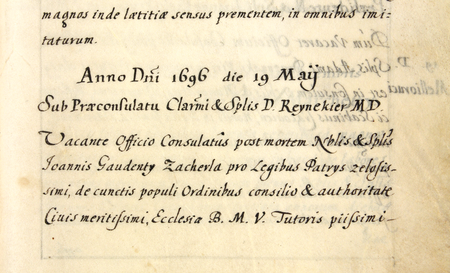 magnos inde lætitiæ sensus prementem, in omnibus imi-
taturum.
Anno Dñi 1696 die 19 Maÿ
Sub Præconsulatu Clarm̃i & Splis D. Reynekier M.D.
Vacante Officio Consulatûs post mortem Nblis & Splis
Joannis Gaudenty Zacherla pro Legibus Patrys zelosis-
simi, de cunctis populi Ordinibus consilio & authoritate
Civis meritissimi, Ecclesiæ B. M. V. Tutoris piissimi-